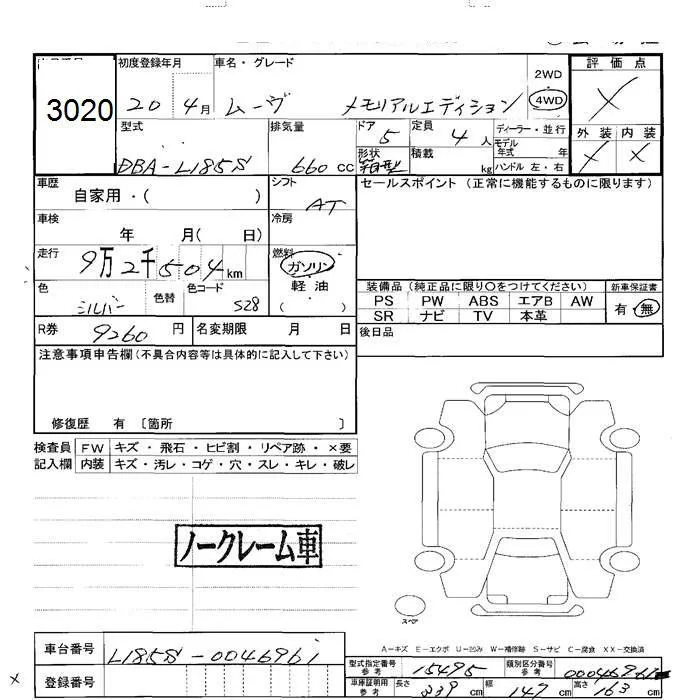 初度登録年月 車名・グレード 2WD 評価点
3020 20年4月 ムーヴ メモリアルエディション 4WD X
型式 排気量 ドア 5 定員 4人 ディーラー・並行 外装 内装
DBA-L185S 660cc 形状 箱型 積載 kg モデル年式 年 ハンドル 左・右 X X
車歴 自家用・( ) シフト AT セールスポイント(正常に機能するものに限ります)
車検 年 月( 日) 冷房
走行 9万2千504km 燃料 ガソリン 軽油 ( )
色 シルバー 色替 色コード S28
装備品(純正品に限り○をつけてください) 新車保証書
PS PW ABS エアB AW 有・無
SR ナビ TV 本革
R券 9260円 名変期限 月 日 後日品
注意事項申告欄(不具合内容等は具体的に記入して下さい)
修復歴 有 〔箇所 〕
検査員 FW キズ・飛石・ヒビ割・リペア跡・×要
記入欄 内装 キズ・汚レ・コゲ・穴・スレ・キレ・破レ
ノークレーム車
スペア
A-キズ E-エクボ U-凹み W-補修跡 S-サビ C-腐食 XX-交換済
車台番号 L185S-0046961
型式指定番号 参考 15495 類別区分番号 参考
X 登録番号 車庫証明用 参考 長さ 339cm 幅 149cm 高さ 163cm